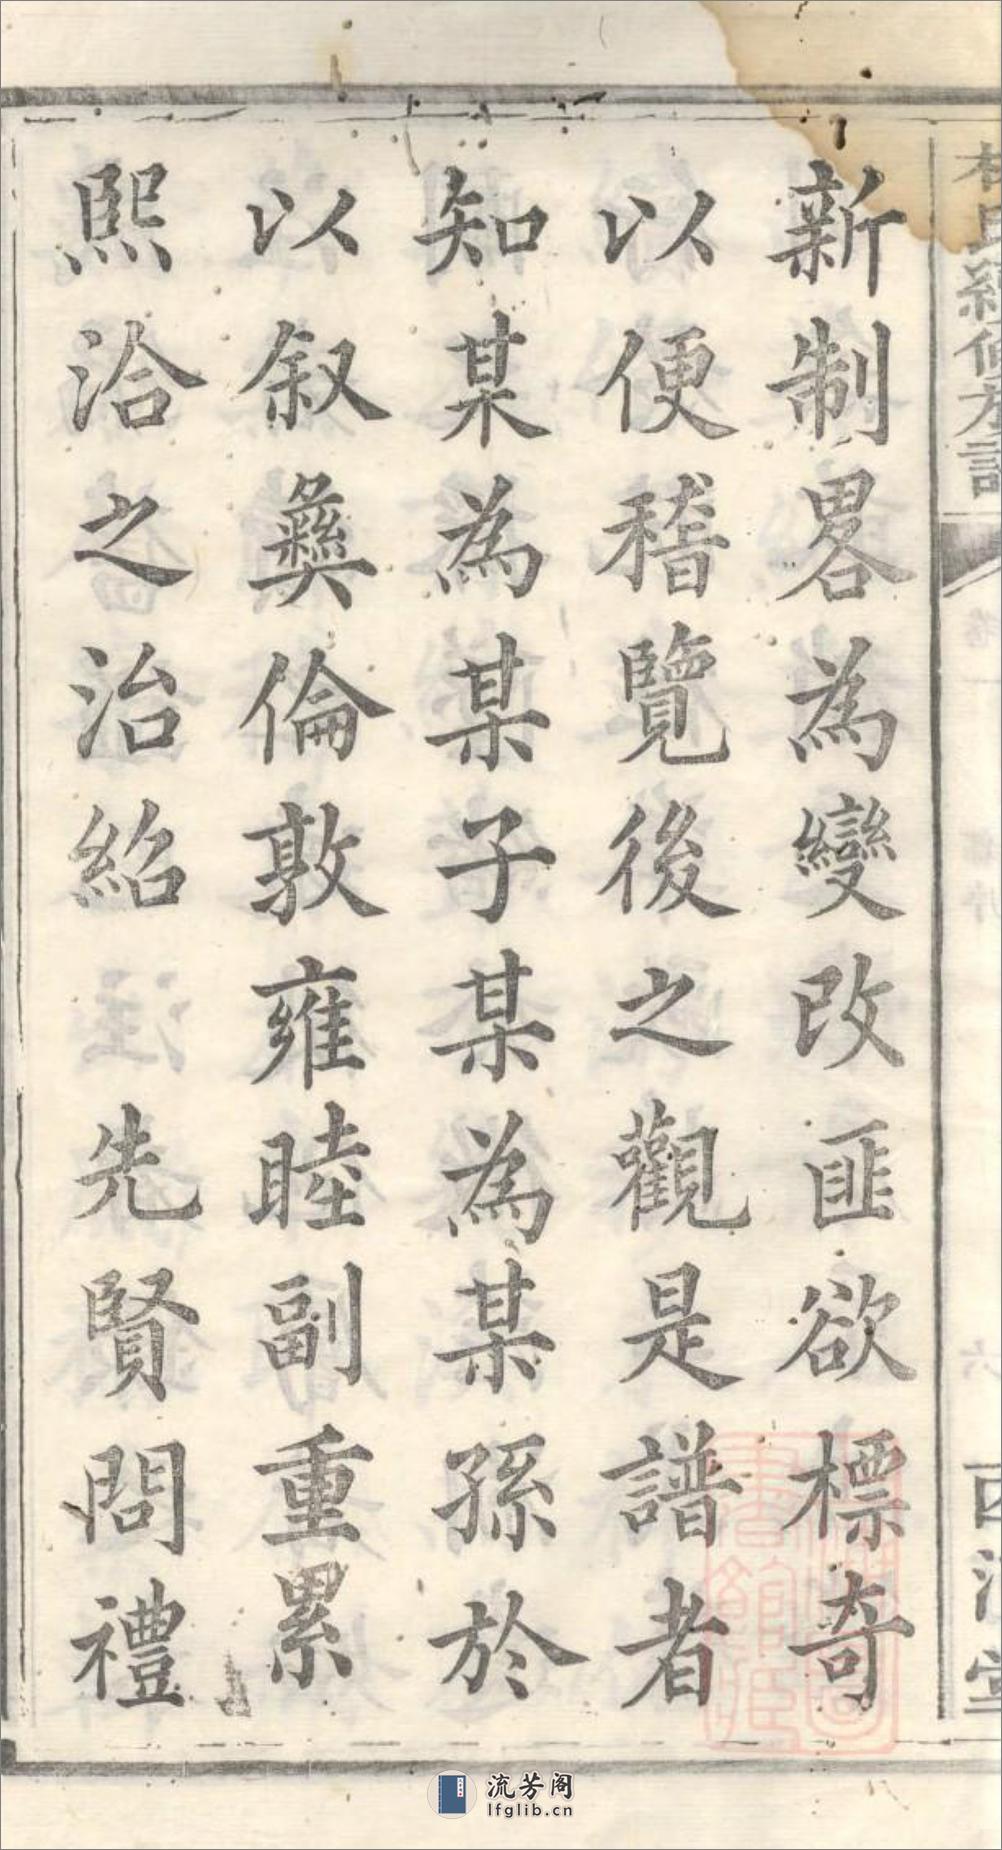 新制畧為變改匪欲標奇
以便稽覽後之觀是譜者
知某為某子某為某孫於
以叙彝倫敦雍睦副重累
熙洽之治紹 先賢問禮
流芳阁
lfglib.cn